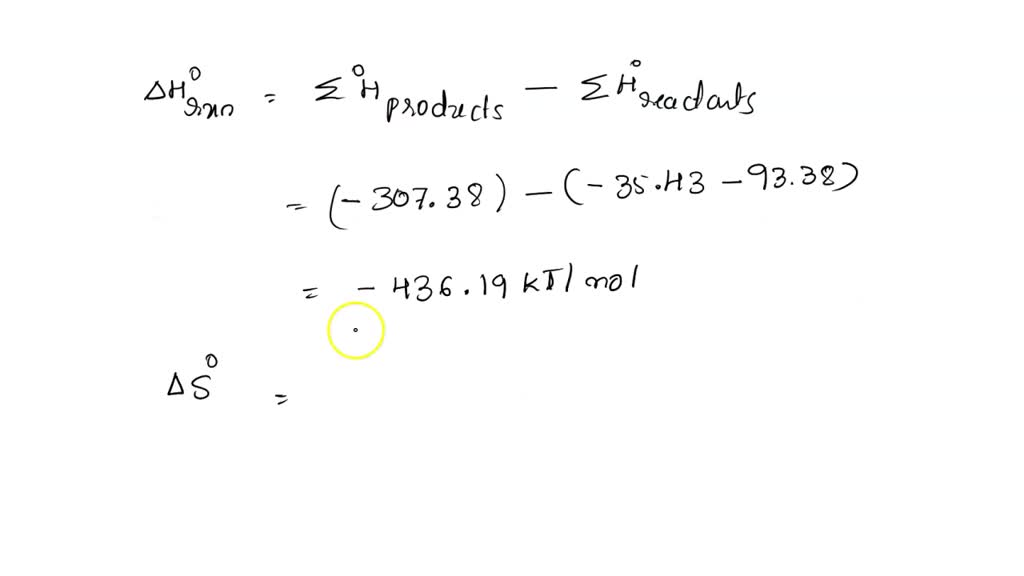 ΔH°rxn = Σ H°products − Σ H°reactants
= (−307.38) − (−35.43 − 93.38)
= − 436.19 kJ/mol
ΔS° =